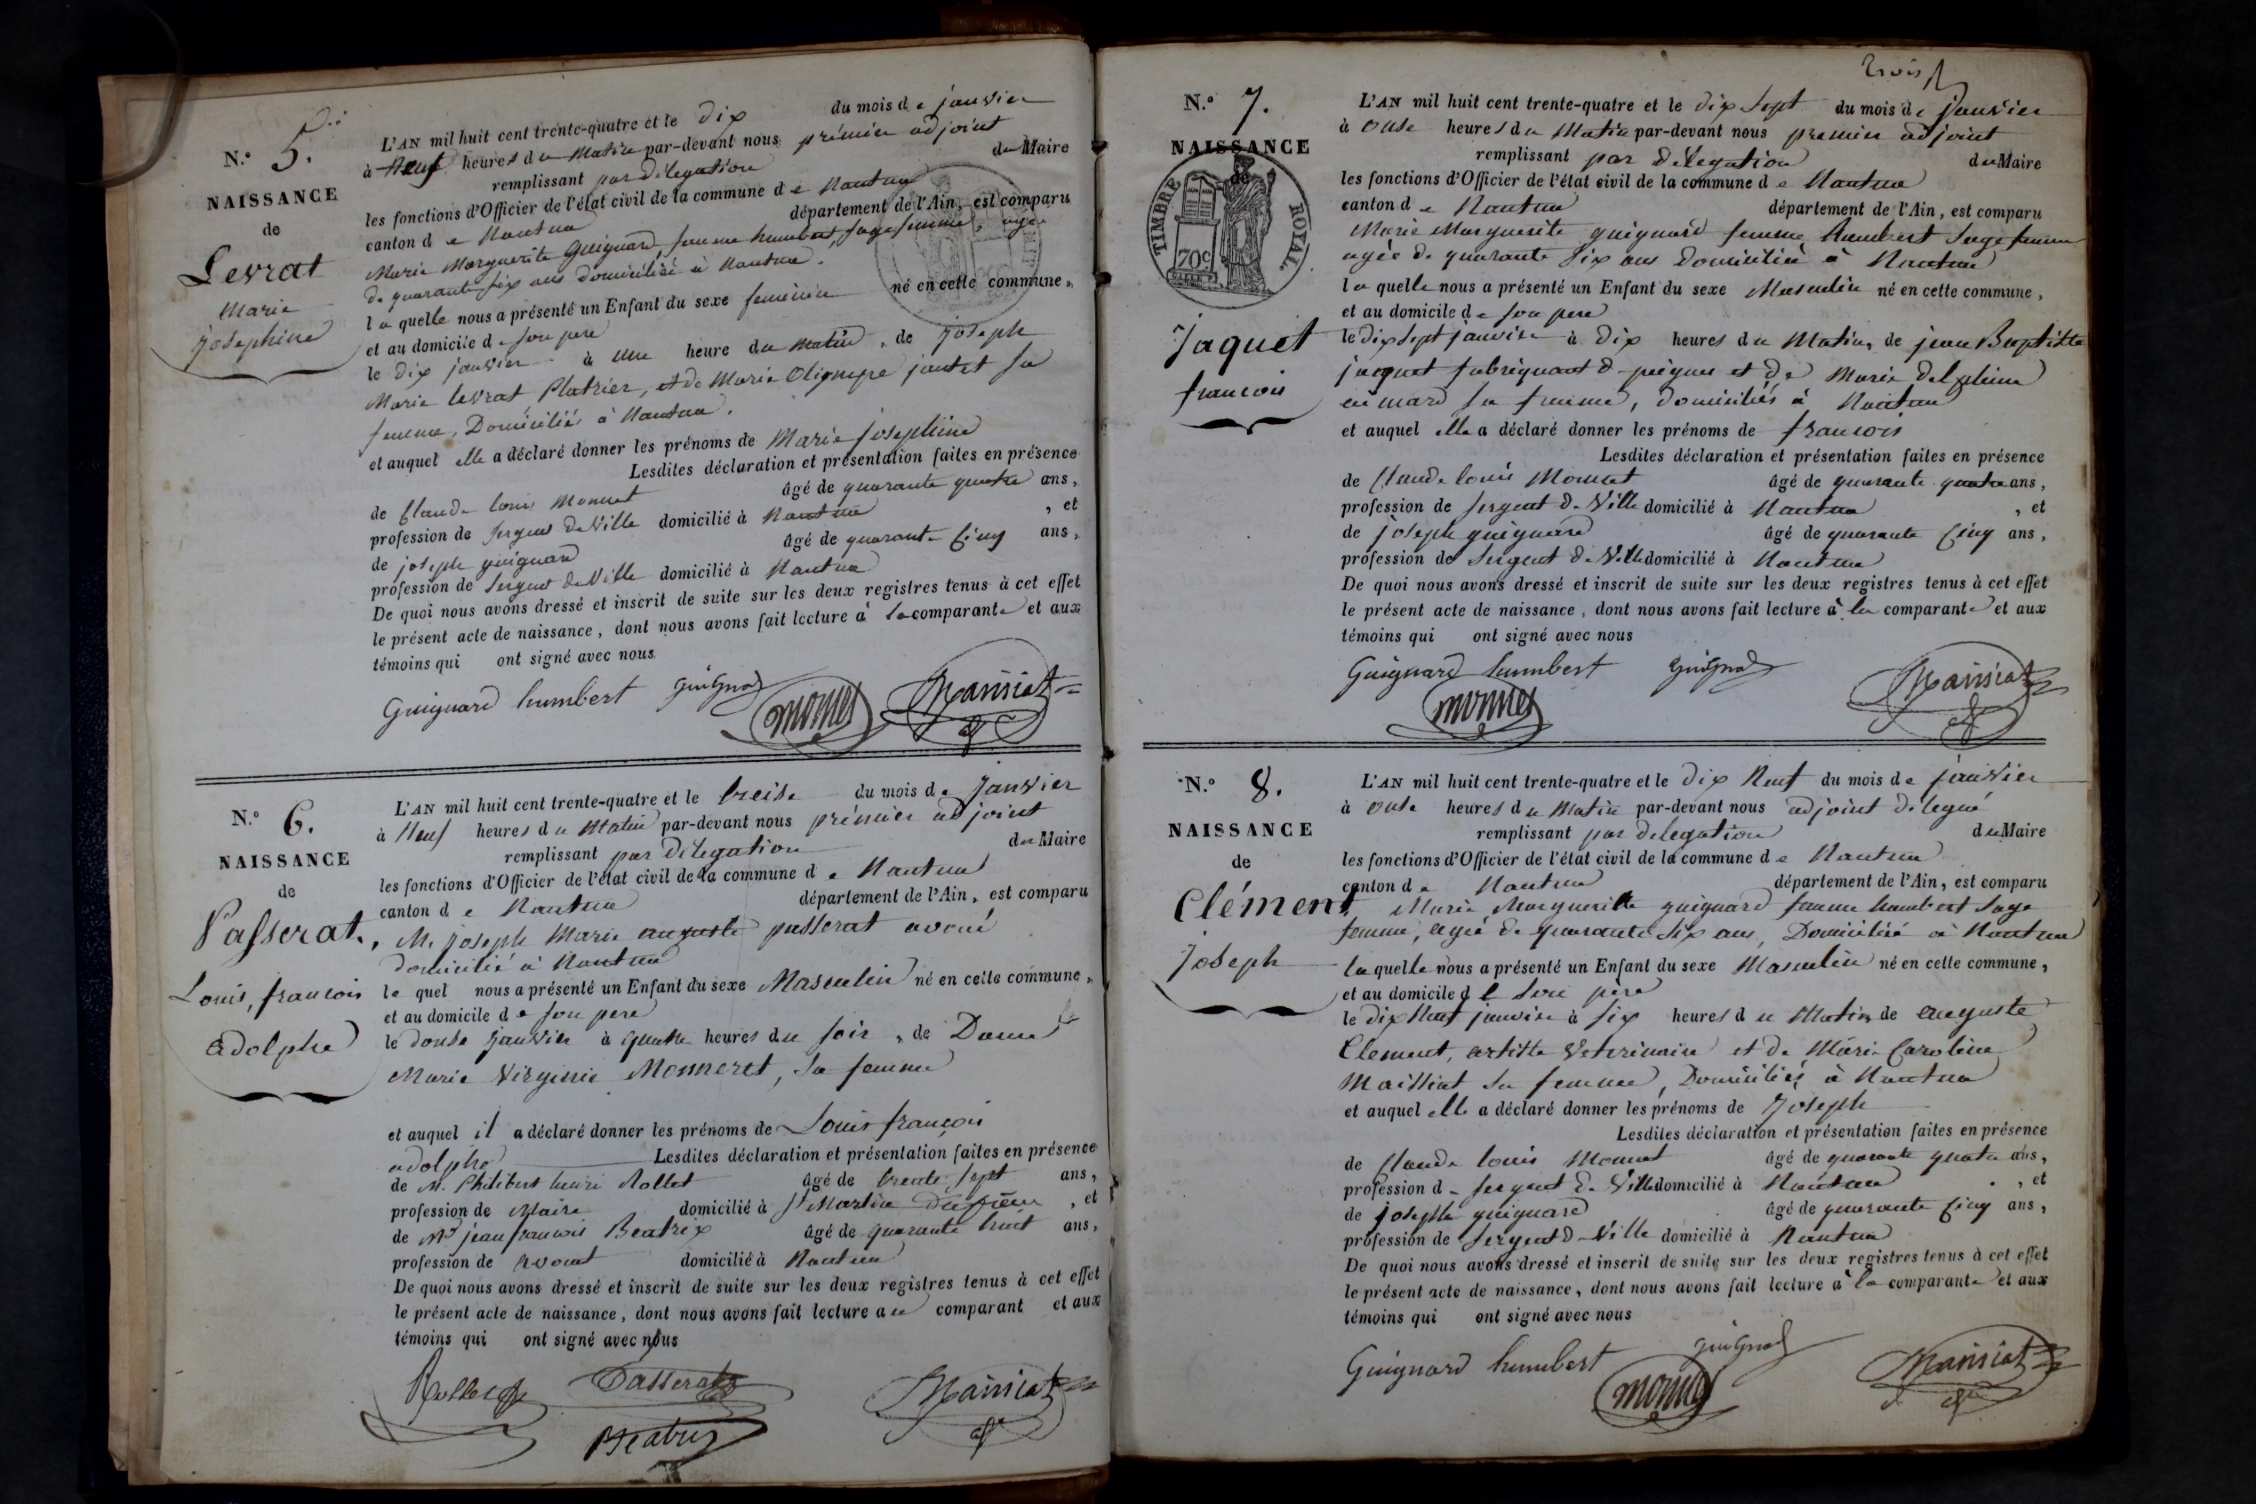 N.° 5.
NAISSANCE
de
Levrat
Marie
Joséphine
L'AN mil huit cent trente-quatre et le dix du mois de janvier
à Neuf heures du matin par-devant nous prémier adjoint
remplissant par délégation du Maire
les fonctions d'Officier de l'état civil de la commune de Nantua
canton de Nantua département de l'Ain, est comparu
Marie Marguerite Guignard femme humbert, sage femme, agée
de quarante six ans domiciliée à Nantua.
laquelle nous a présenté un Enfant du sexe feminin né en cette commune,
et au domicile de son pere
le dix janvier à une heure du matin, de joseph
Marie levrat Platrier, et de Marie Olimpe jantet sa
femme, Domiciliés à Nantua.
et auquel elle a déclaré donner les prénoms de Marie josephine
Lesdites déclaration et présentation faites en présence
de Claude louis Monnet âgé de quarante quatre ans,
profession de sergent de Ville domicilié à Nantua, et
de joseph guignard âgé de quarante Cinq ans,
profession de sergent de Ville domicilié à Nantua
De quoi nous avons dressé et inscrit de suite sur les deux registres tenus à cet effet
le présent acte de naissance, dont nous avons fait lecture à la comparante et aux
témoins qui ont signé avec nous
Guignard humbert guignard monnet Maissiat
N.° 6.
NAISSANCE
de
Passerat,
Louis, francois
adolphe
L'AN mil huit cent trente-quatre et le treise du mois de janvier
à Neuf heures du Matin par-devant nous prémier adjoint
remplissant par délégation du Maire
les fonctions d'Officier de l'état civil de la commune de Nantua
canton de Nantua département de l'Ain, est comparu
M. joseph Marie auguste passerat avoué
domicilié à Nantua
lequel nous a présenté un Enfant du sexe Masculin né en cette commune,
et au domicile de son pere
le douse janvier à quatre heures du soir, de Dame
Marie Virginie Monneret, sa femme
et auquel il a déclaré donner les prénoms de Louis françois
adolphe Lesdites déclaration et présentation faites en présence
de M. Philibert henri Rollet âgé de trente sept ans,
profession de Maire domicilié à St Martin Dufrêne, et
de Mr jean francois Beatrix âgé de quarante huit ans,
profession de avocat domicilié à Nantua
De quoi nous avons dressé et inscrit de suite sur les deux registres tenus à cet effet
le présent acte de naissance, dont nous avons fait lecture au comparant et aux
témoins qui ont signé avec nous
Rollet Passerat Maissiat
Beatrix
trois
N.° 7.
NAISSANCE
de
TIMBRE ROYAL.
70c
Jaquet
francois
L'AN mil huit cent trente-quatre et le dix sept du mois de janvier
à onse heures du Matin par-devant nous premier adjoint
remplissant par délégation du Maire
les fonctions d'Officier de l'état civil de la commune de Nantua
canton de Nantua département de l'Ain, est comparu
Marie Marguerite guignard femme humbert sage femme
agée de quarante six ans domiciliée à Nantua
laquelle nous a présenté un Enfant du sexe Masculin né en cette commune,
et au domicile de son pere
le dix sept janvier à dix heures du Matin, de jean Baptiste
jacquet fabriquant de peignes et de Marie Delphine
sa femme, domiciliés à Nantua
et auquel elle a déclaré donner les prénoms de francois
Lesdites déclaration et présentation faites en présence
de Claude louis Monnet âgé de quarante quatre ans,
profession de sergent de Ville domicilié à Nantua, et
de joseph guignard âgé de quarante Cinq ans,
profession de sergent de Ville domicilié à Nantua
De quoi nous avons dressé et inscrit de suite sur les deux registres tenus à cet effet
le présent acte de naissance, dont nous avons fait lecture à la comparante et aux
témoins qui ont signé avec nous
Guignard humbert guignard Maissiat
monnet
N.° 8.
NAISSANCE
de
Clément
Joseph
L'AN mil huit cent trente-quatre et le dix Neuf du mois de janvier
à onse heures du Matin par-devant nous adjoint délegué
remplissant par delegation du Maire
les fonctions d'Officier de l'état civil de la commune de Nantua
canton de Nantua département de l'Ain, est comparu
Marie Marguerite guignard femme humbert sage
femme, agée de quarante six ans, Domiciliée à Nantua
laquelle nous a présenté un Enfant du sexe Masculin né en cette commune,
et au domicile de son père
le dix Neuf janvier à six heures du Matin de auguste
Clement, artiste Veterinaire et de Marie Caroline
Maissiat sa femme, Domiciliés à Nantua
et auquel elle a déclaré donner les prénoms de Joseph
Lesdites déclaration et présentation faites en présence
de Claude louis Monnet âgé de quarante quatre ans,
profession de sergent de Ville domicilié à Nantua, et
de joseph guignard âgé de quarante Cinq ans,
profession de sergent de Ville domicilié à Nantua
De quoi nous avons dressé et inscrit de suite sur les deux registres tenus à cet effet
le présent acte de naissance, dont nous avons fait lecture à la comparante et aux
témoins qui ont signé avec nous
Guignard humbert guignard Maissiat
monnet